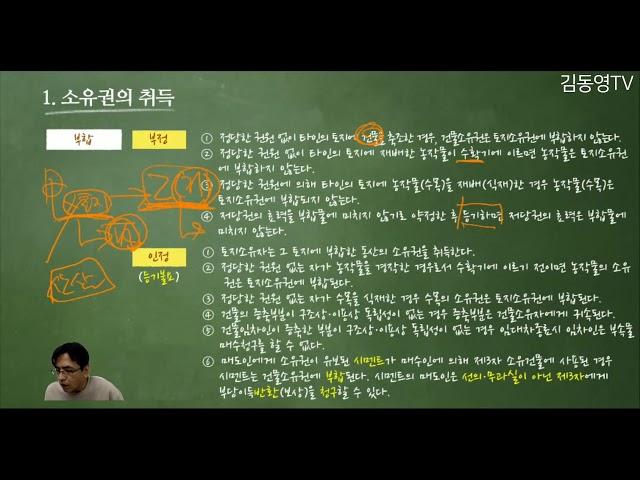 김동영TV
1. 소유권의 취득
부합
부정
① 정당한 권원 없이 타인의 토지에 건물을 축조한 경우, 건물소유권은 토지소유권에 부합하지 않는다.
② 정당한 권원 없이 타인의 토지에 재배한 농작물이 수확기에 이르면 농작물은 토지소유권
에 부합하지 않는다.
③ 정당한 권원에 의해 타인의 토지에 농작물(수목)을 재배(식재)한 경우 농작물(수목)은
토지소유권에 부합되지 않는다.
④ 저당권의 효력을 부합물에 미치지 않기로 약정한 후 등기하면 저당권의 효력은 부합물에
미치지 않는다.
인정
(등기불요)
① 토지소유자는 그 토지에 부합한 동산의 소유권을 취득한다.
② 정당한 권원 없는 자가 농작물을 경작한 경우로서 수확기에 이르기 전이면 농작물의 소유
권은 토지소유권에 부합된다.
③ 정당한 권원 없는 자가 수목을 식재한 경우 수목의 소유권은 토지소유권에 부합된다.
④ 건물의 증축부분이 구조상·이용상 독립성이 없는 경우 증축부분은 건물소유자에게 귀속된다.
⑤ 건물임차인이 증축한 부분이 구조상·이용상 독립성이 없는 경우 임대차종료시 임차인은 부속물
매수청구를 할 수 없다.
⑥ 매도인에게 소유권이 유보된 시멘트가 매수인에 의해 제3자 소유건물에 사용된 경우
시멘트는 건물소유권에 부합된다. 시멘트의 매도인은 선의·무과실이 아닌 제3자에게
부당이득반환(보상)을 청구할 수 있다.